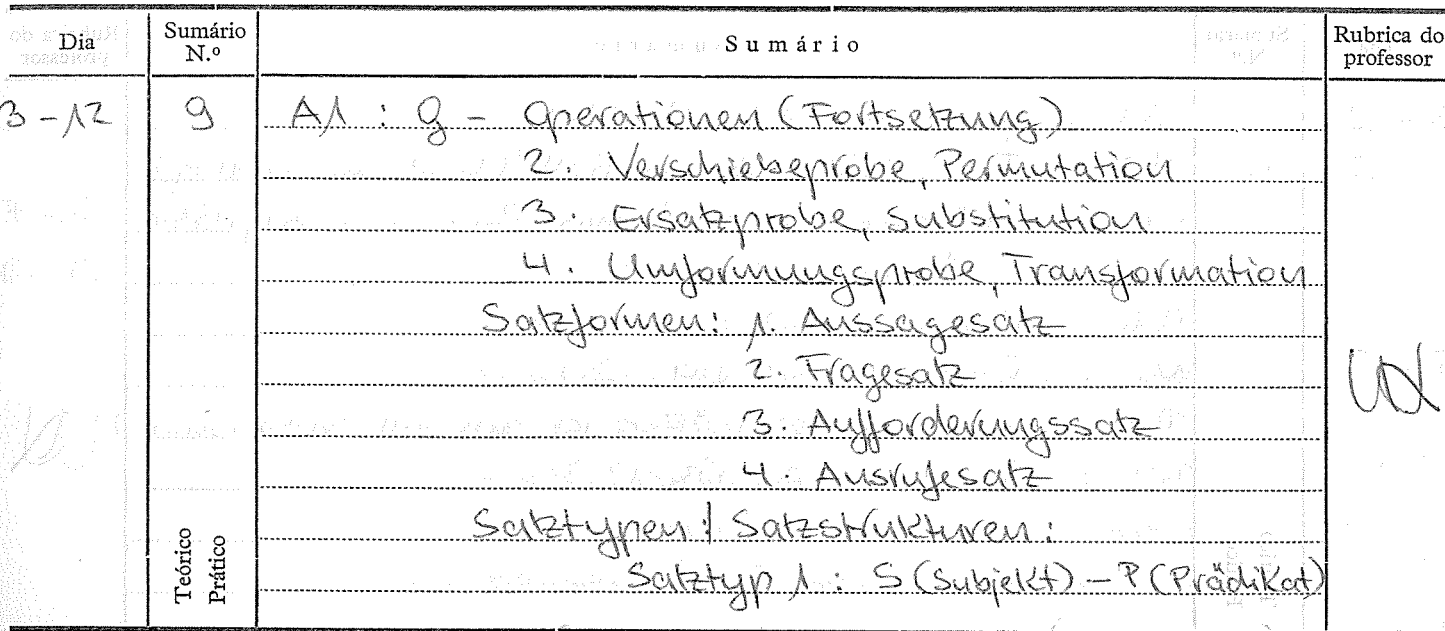 Dia
Sumário N.º
Sumário
Rubrica do professor
3-12
9
A1 : g - Operationen (Fortsetzung)
2. Verschiebeprobe, Permutation
3. Ersatzprobe, Substitution
4. Umformungsprobe, Transformation
Satzformen: 1. Aussagesatz
2. Fragesatz
3. Aufforderungssatz
4. Ausrufesatz
Satztypen / Satzstrukturen:
Satztyp 1 : S (Subjekt) – P (Prädikat)
Teórico
Prático